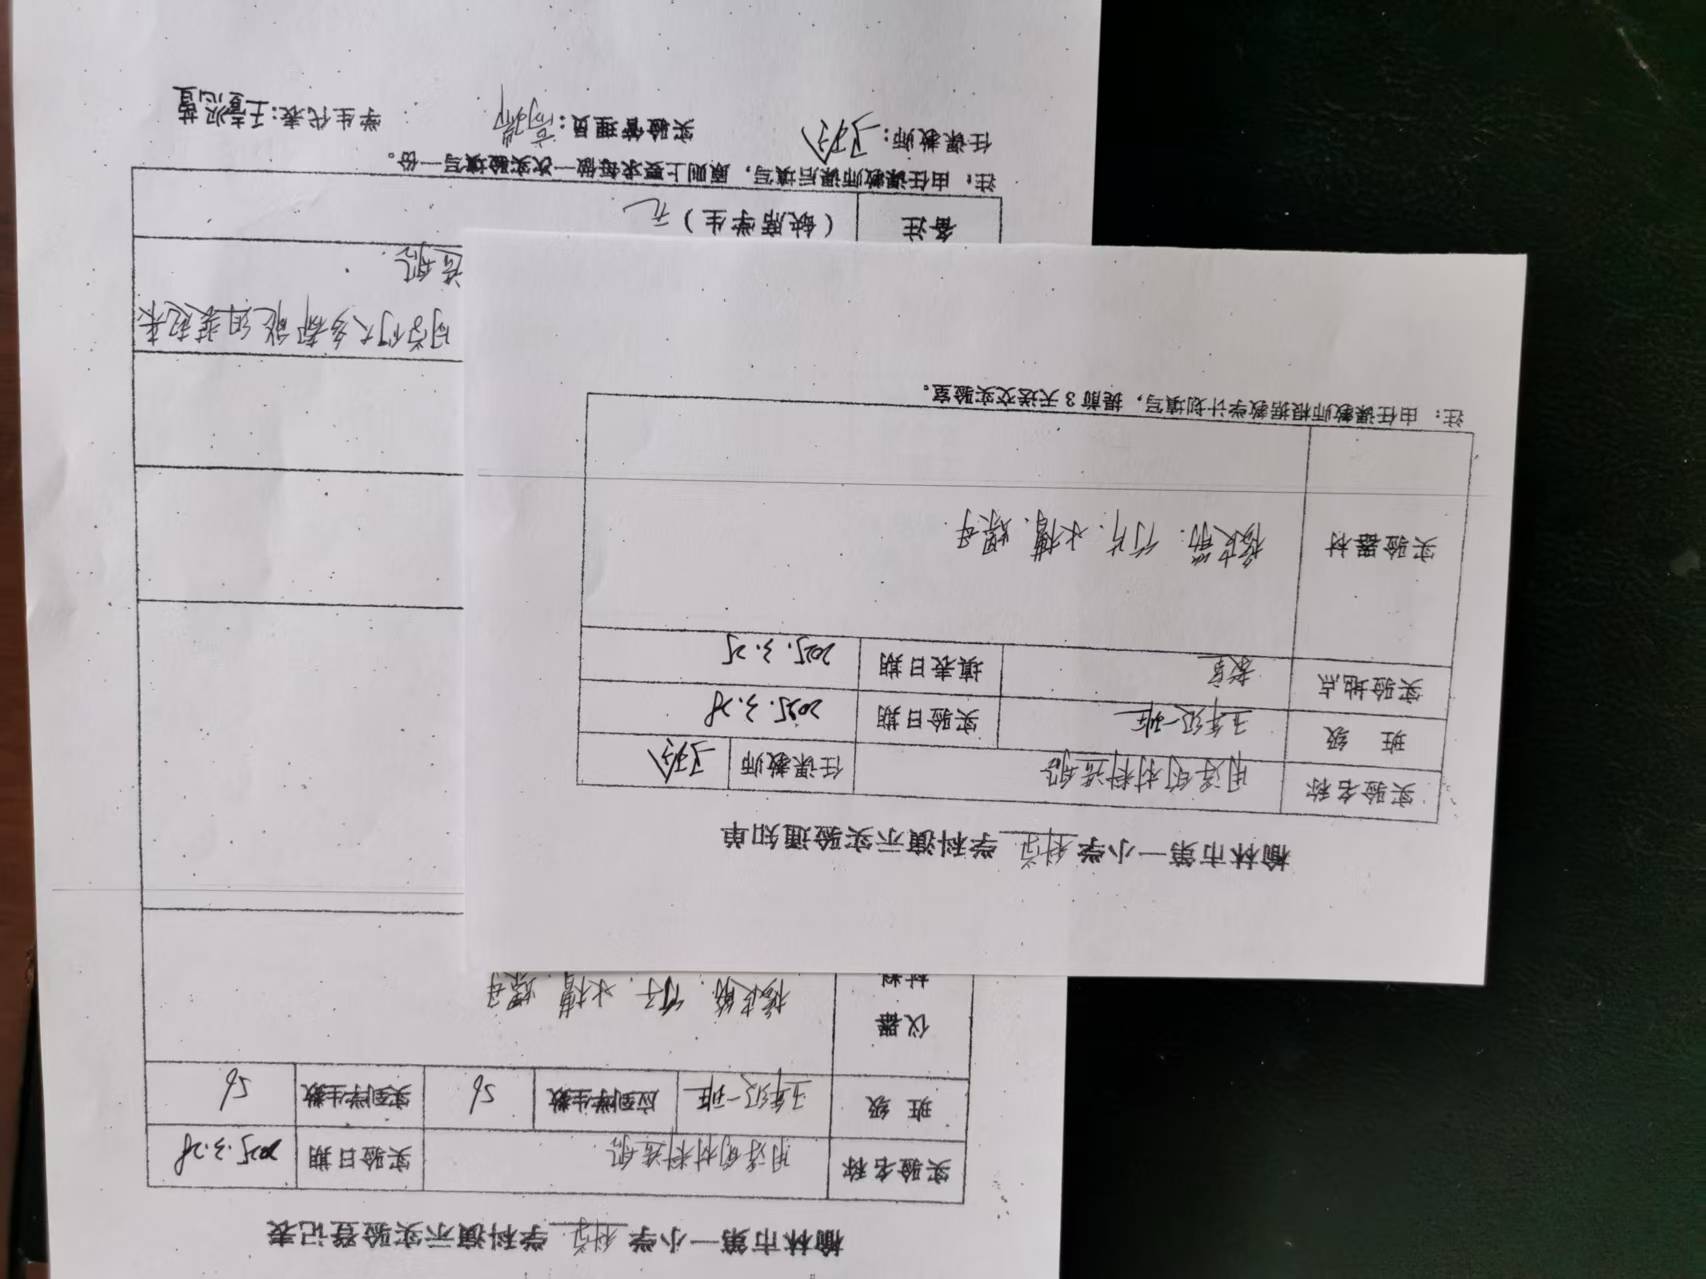 榆林市第一小学科学学科演示实验通知单
实验名称 用浮的材料造船 任课教师
班 级 五年级一班 实验日期 2025.3.28
实验地点 教室 填表日期 2025.3.25
实验器材 橡皮筋.竹片.水槽.螺母.
注：由任课教师根据教学计划填写，提前3天送交实验室。
榆林市第一小学科学学科演示实验登记表
实验名称 用浮的材料造船. 实验日期 2025.3.28
班 级 五年级一班 应到学生数 56 实到学生数 56
仪器
材料
橡皮筋.竹子.水槽.螺母
同学们大多都能组装起来
造船.
备注 （缺席学生） 无
注：由任课教师课后填写，原则上要求每做一次实验填写一份。
任课教师： 实验管理员： 学生代表：王宣懿